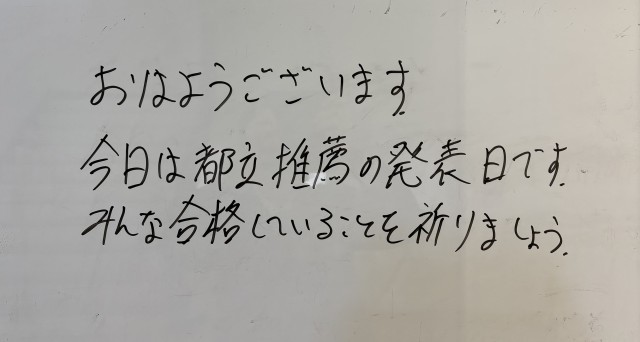 おはようございます.
今日は都立推薦の発表日です.
みんな合格していることを祈りましょう.